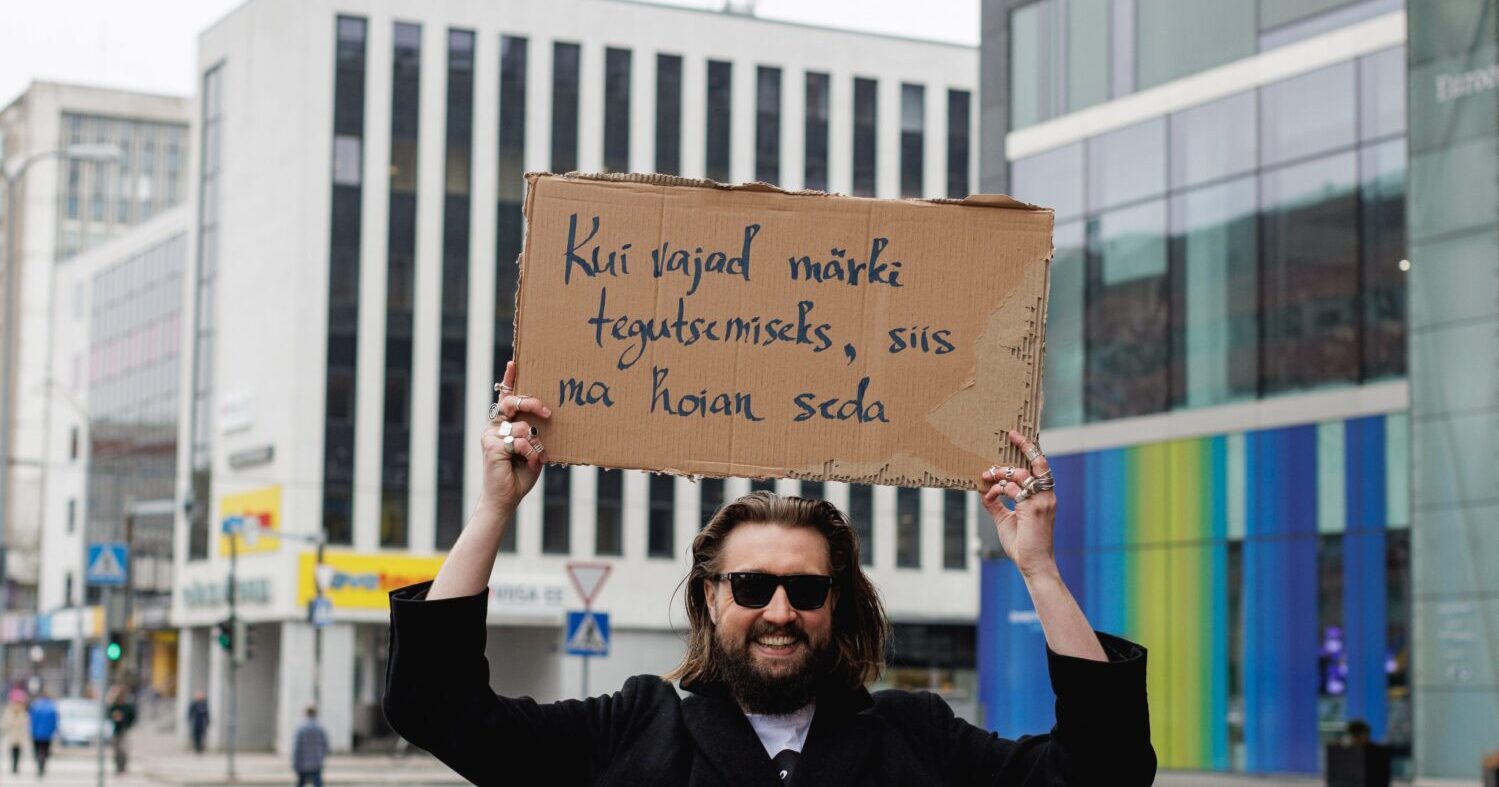 Kui vajad märki
tegutsemiseks, siis
ma hoian seda